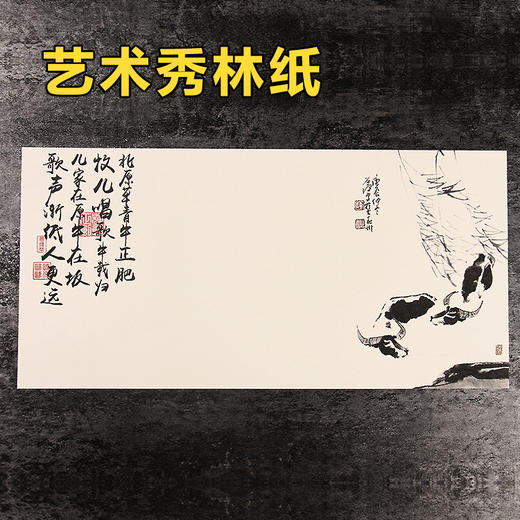 艺术秀林纸
北原草青牛正肥
牧儿唱歌牛载归
儿家在原牛在坂
歌声渐低人更远